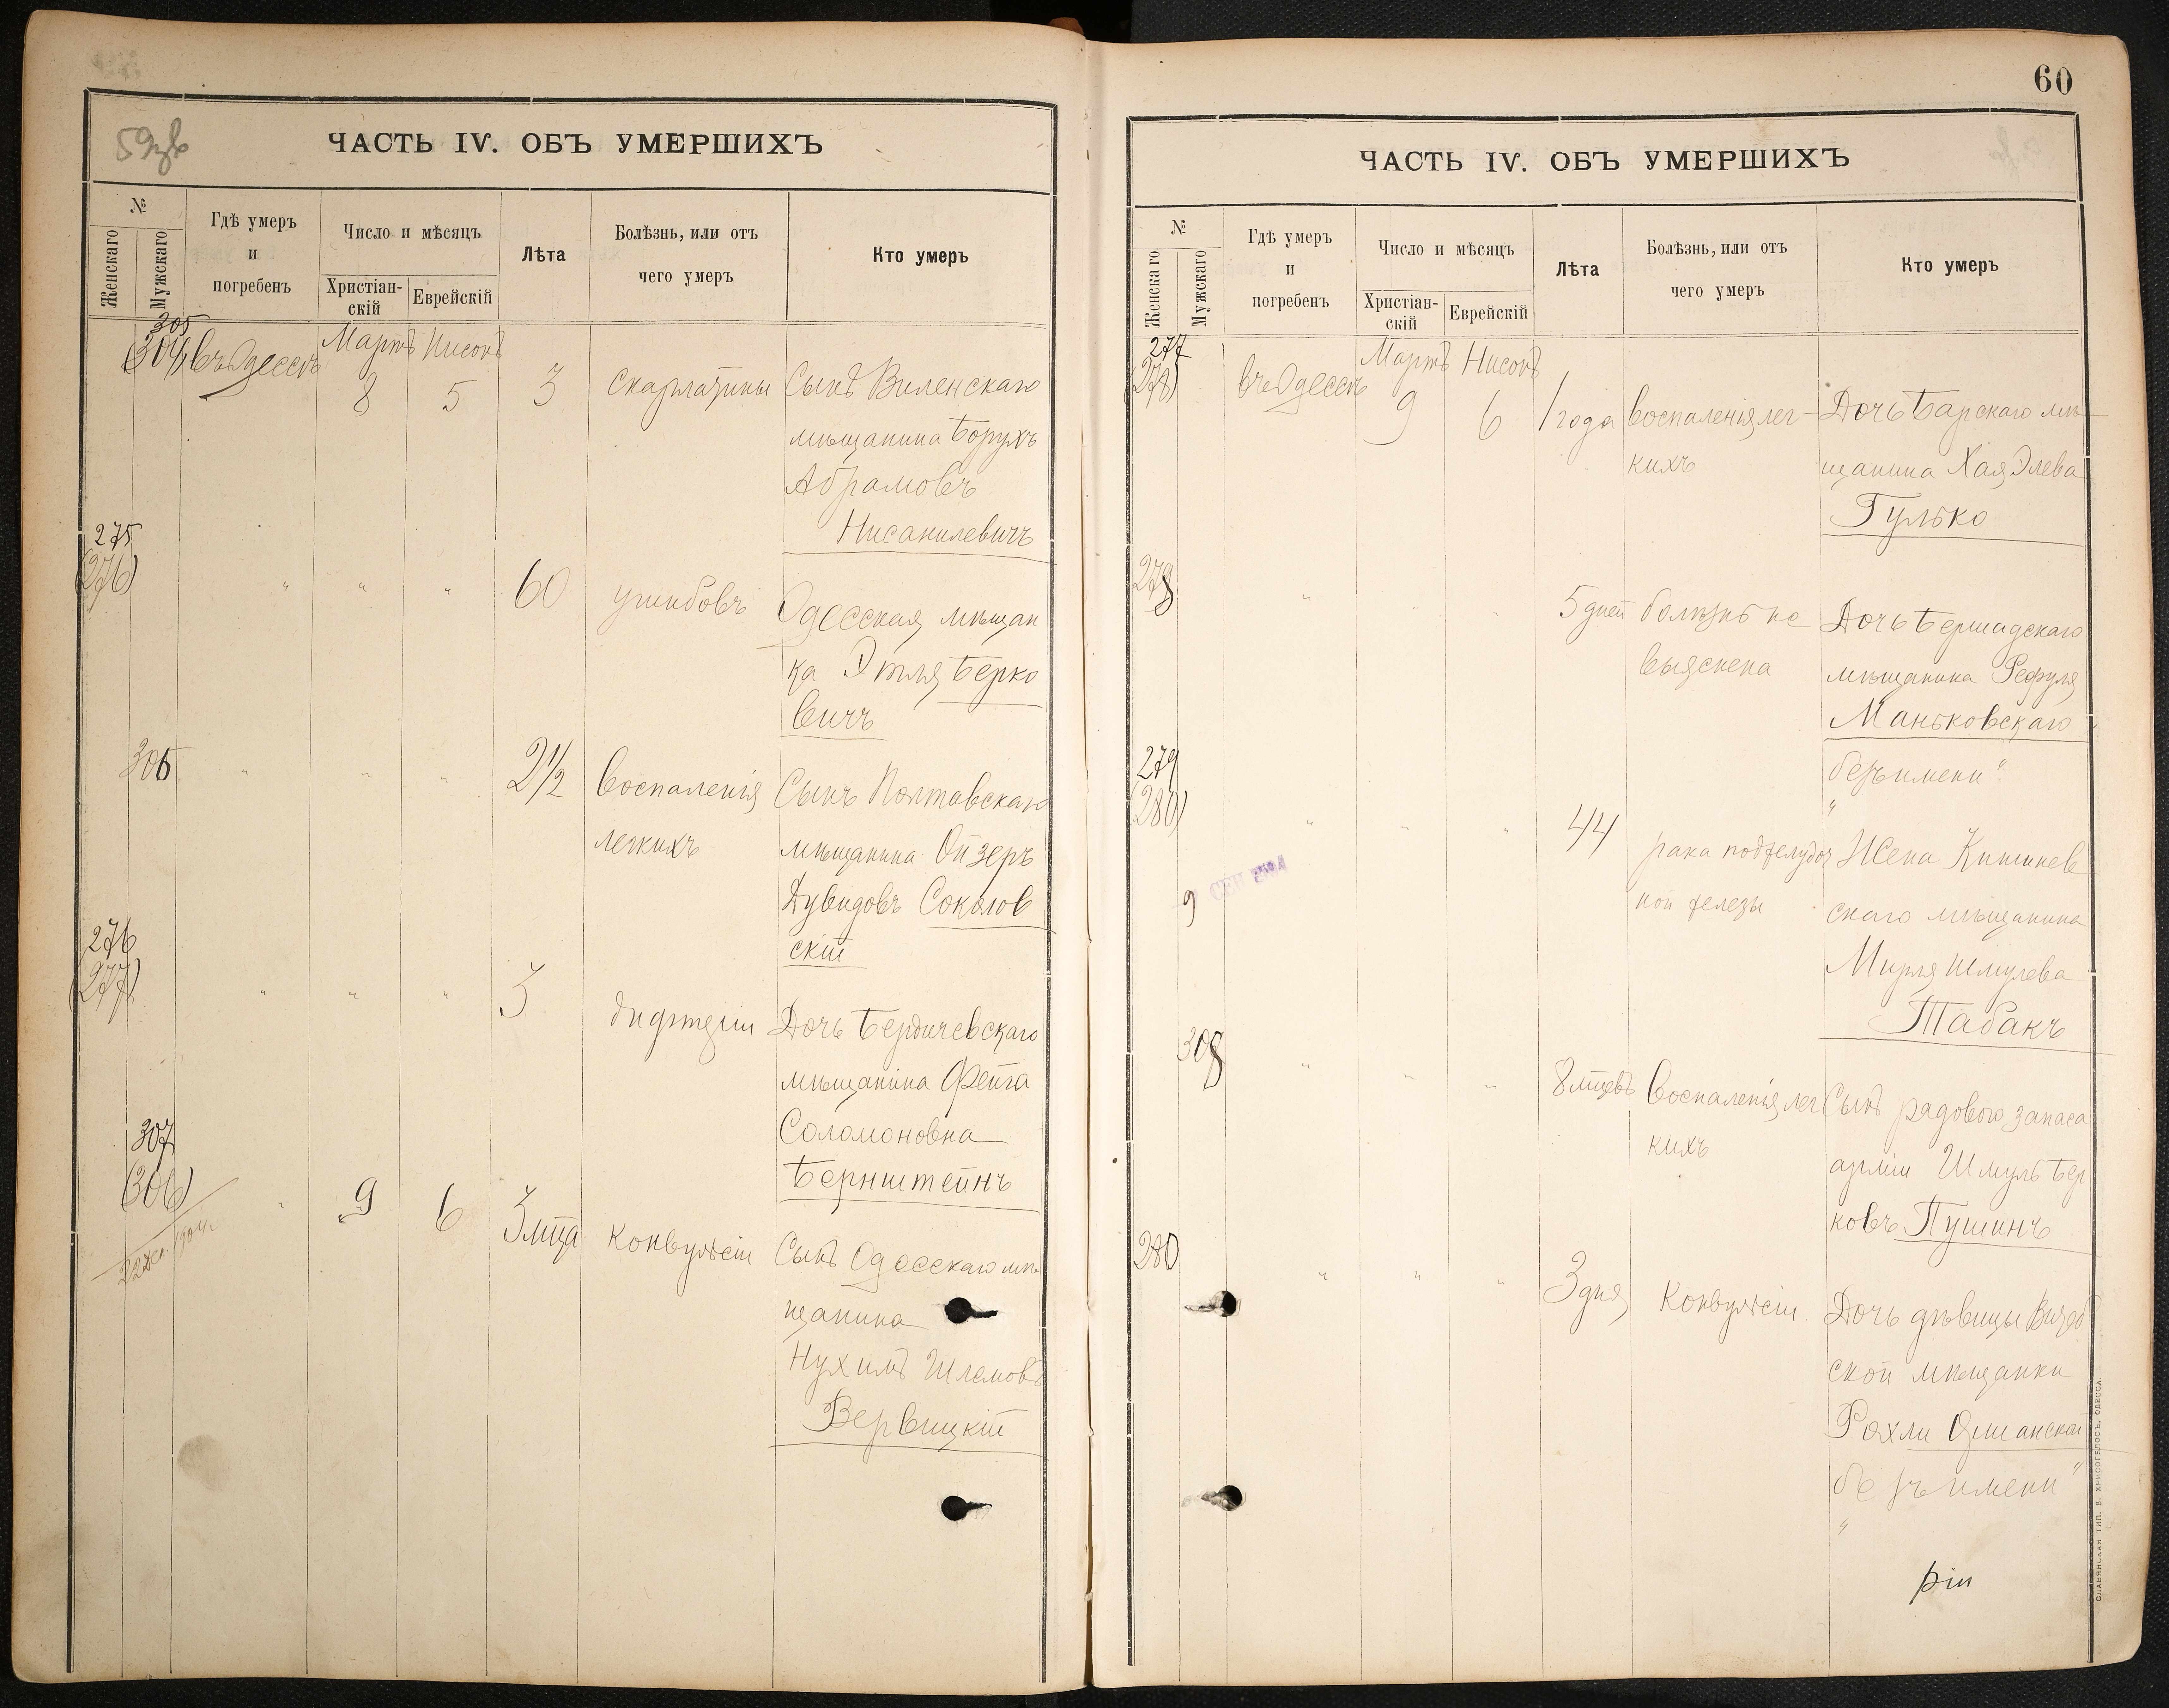 59зв
ЧАСТЬ IV. ОБЪ УМЕРШИХЪ
№
Женскаго
Мужскаго
Гдѣ умеръ
и
погребенъ
Число и мѣсяцъ
Христіан-
скій
Еврейскій
Лѣта
Болѣзнь, или отъ
чего умеръ
Кто умеръ
305
(304) въ Одессѣ Мартъ Нисонъ
8 5 3 скарлатины Сынъ Виленскаго
мѣщанина Борухъ
Абрамовъ
Нисанилевичъ
275
(276) " " " 60 ушибовъ Одесская мѣщан
ка Этля Берко
вичъ
306 " " " 2 1/2 воспаленія Сынъ Полтавскаго
легкихъ мѣщанина Ойзеръ
Дувидовъ Соколов
скій
276
(277) " " " 3 дифтеріи Дочь Бердичевскаго
мѣщанина Фейга
Соломоновна
Бернштейнъ
307
(306) " 9 6 3 мца конвульсіи Сынъ Одесскаго мѣ
щанина
Нухимъ Шлемовъ
Вервицкій
60
ЧАСТЬ IV. ОБЪ УМЕРШИХЪ
№
Женскаго
Мужскаго
Гдѣ умеръ
и
погребенъ
Число и мѣсяцъ
Христіан-
скій
Еврейскій
Лѣта
Болѣзнь, или отъ
чего умеръ
Кто умеръ
277
(278) въ Одессѣ Мартъ Нисонъ
9 6 1 года воспаленія лег- Дочь Барскаго мѣ
кихъ щанина Хая Элева
Гулько
278 " " " 5 дней болѣзнь не Дочь Бершадскаго
выяснена мѣщанина Рефуля
Маньковскаго
безъ имени"
"
279
(280) " " " 44 рака поджелудоч Жена Кишинев
ной железы скаго мѣщанина
9 СЕН
Мирля Шмулева
Табакъ
308 " " " 8 мцевъ воспаленія лег Сынъ рядового запаса
кихъ арміи Шмуль Бер
ковъ Пушинъ
280 " " " 3 дня конвульсіи Дочь дѣвицы
ской мѣщанки
Рохли
безъ имени"
"
СЛАВЯНСКАЯ ТИП. В. ХРИСОГЕЛОСЪ, ОДЕССА.